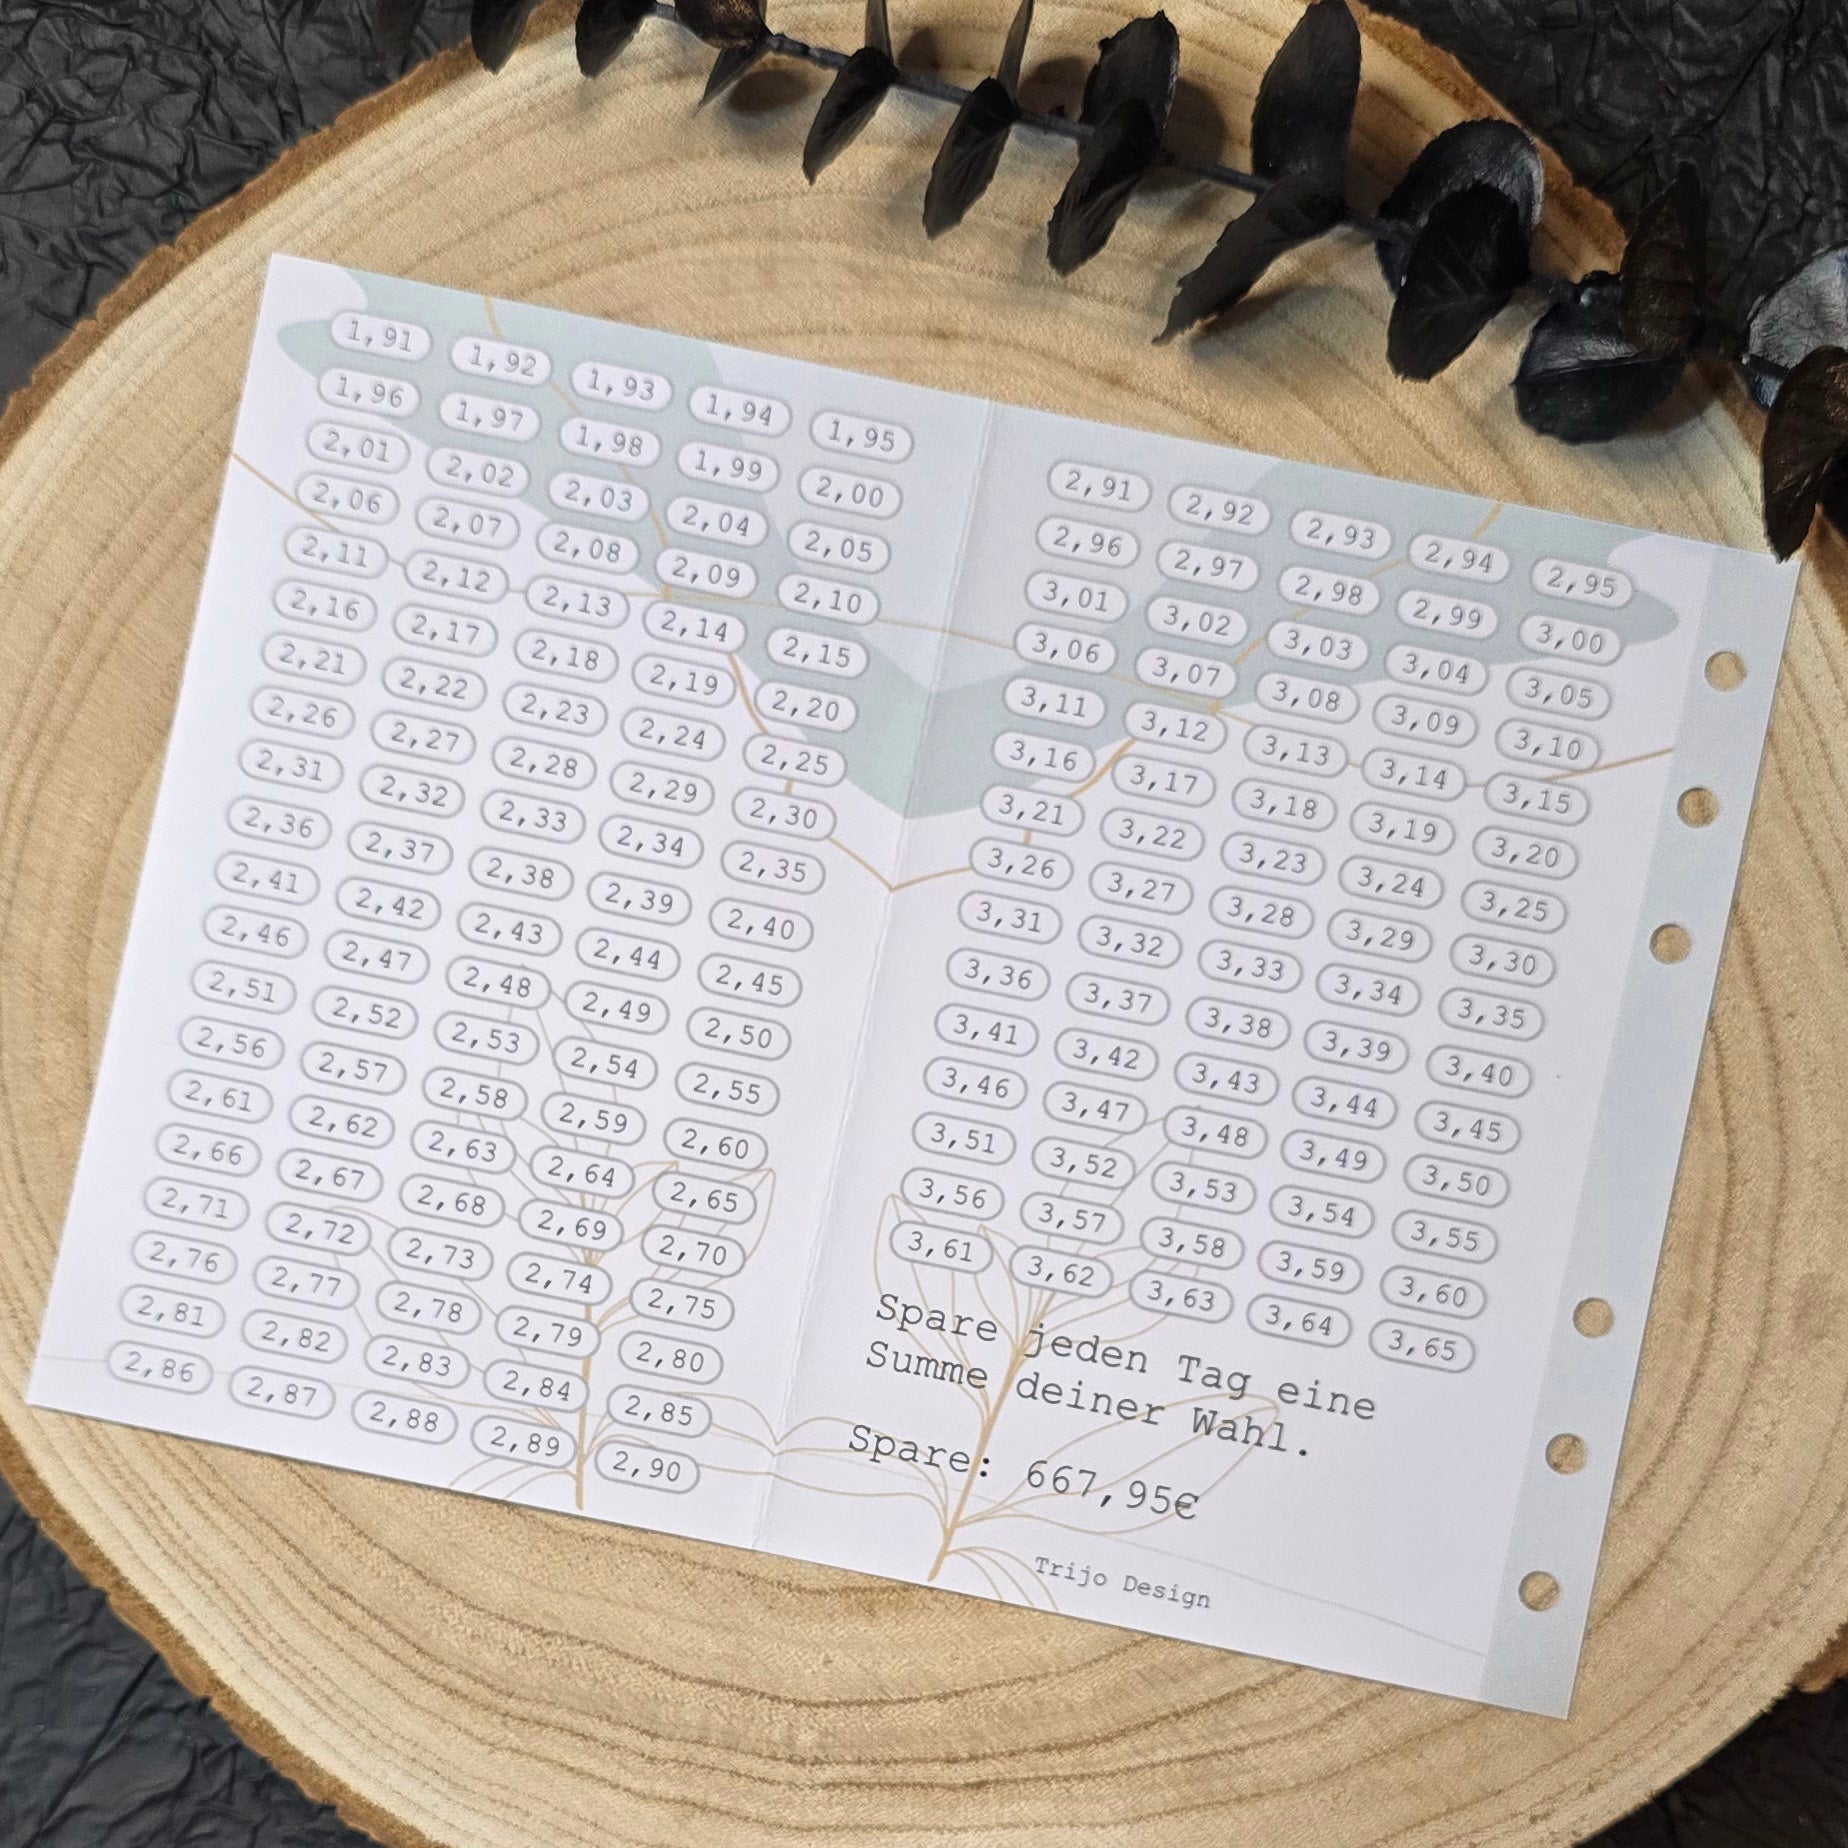 1,91 1,92 1,93 1,94 1,95
1,96 1,97 1,98 1,99 2,00
2,01 2,02 2,03 2,04 2,05
2,06 2,07 2,08 2,09 2,10
2,11 2,12 2,13 2,14 2,15
2,16 2,17 2,18 2,19 2,20
2,21 2,22 2,23 2,24 2,25
2,26 2,27 2,28 2,29 2,30
2,31 2,32 2,33 2,34 2,35
2,36 2,37 2,38 2,39 2,40
2,41 2,42 2,43 2,44 2,45
2,46 2,47 2,48 2,49 2,50
2,51 2,52 2,53 2,54 2,55
2,56 2,57 2,58 2,59 2,60
2,61 2,62 2,63 2,64 2,65
2,66 2,67 2,68 2,69 2,70
2,71 2,72 2,73 2,74 2,75
2,76 2,77 2,78 2,79 2,80
2,81 2,82 2,83 2,84 2,85
2,86 2,87 2,88 2,89 2,90
2,91 2,92 2,93 2,94 2,95
2,96 2,97 2,98 2,99 3,00
3,01 3,02 3,03 3,04 3,05
3,06 3,07 3,08 3,09 3,10
3,11 3,12 3,13 3,14 3,15
3,16 3,17 3,18 3,19 3,20
3,21 3,22 3,23 3,24 3,25
3,26 3,27 3,28 3,29 3,30
3,31 3,32 3,33 3,34 3,35
3,36 3,37 3,38 3,39 3,40
3,41 3,42 3,43 3,44 3,45
3,46 3,47 3,48 3,49 3,50
3,51 3,52 3,53 3,54 3,55
3,56 3,57 3,58 3,59 3,60
3,61 3,62 3,63 3,64 3,65
Spare jeden Tag eine
Summe deiner Wahl.
Spare: 667,95€
Trijo Design